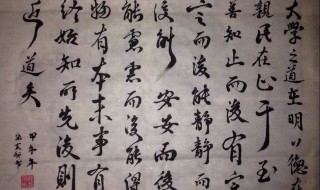 大學之道在明〻德在
親民在止于至
善知止而後有定
〻而後能静静而
後能安安而後
能慮慮而後能得
物有本末事有
終始知所先後則
近道矣
甲午年